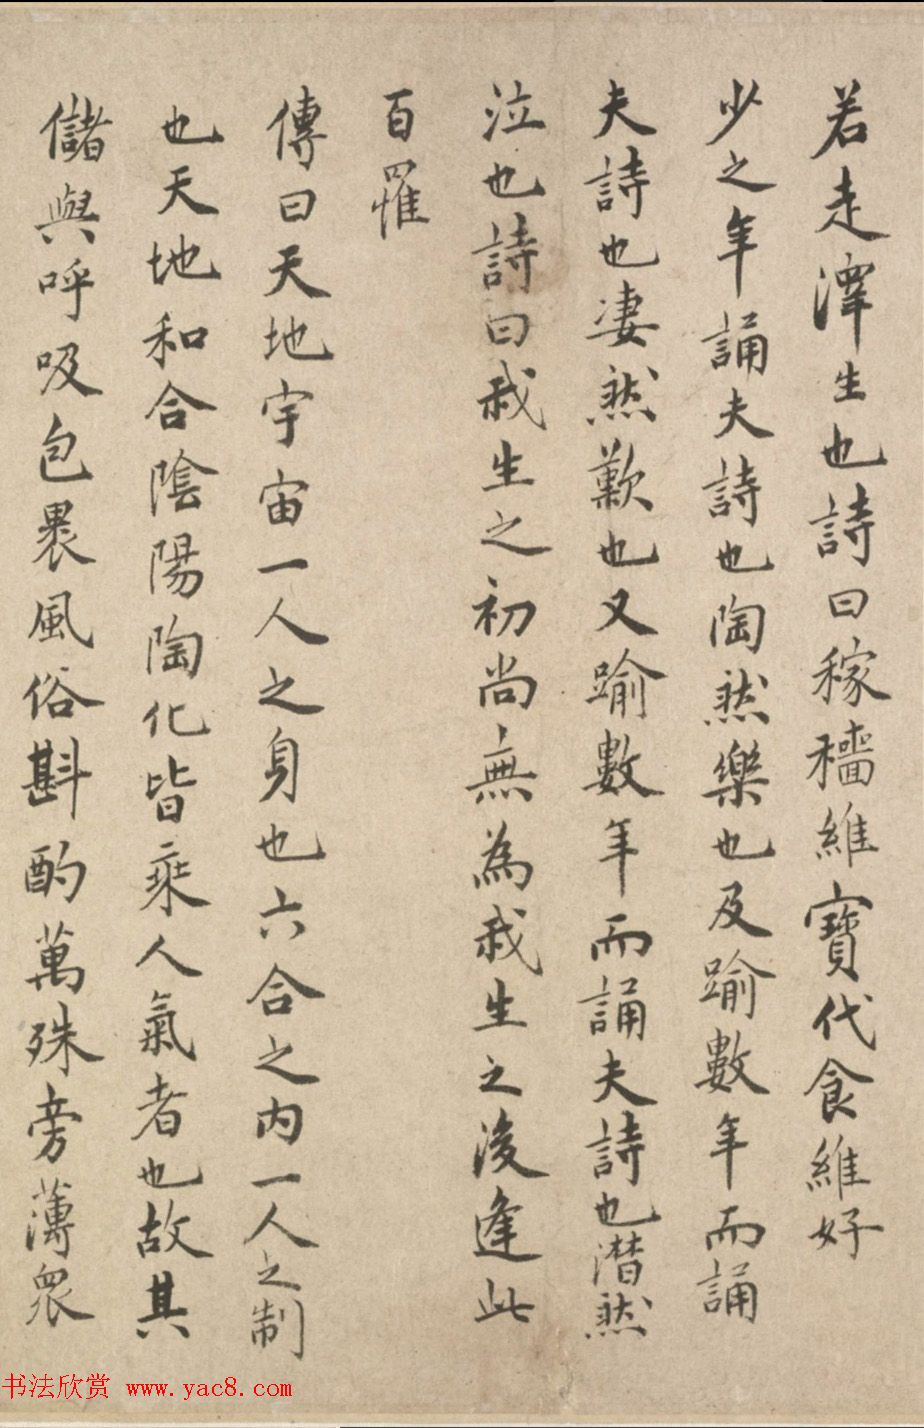 若走澤生也詩曰稼穡維寶代食維好
少之年誦夫詩也陶然樂也及踰數年而誦
夫詩也淒然歎也又踰數年而誦夫詩也潸然
泣也詩曰我生之初尚無為我生之後逢此
百罹
傳曰天地宇宙一人之身也六合之内一人之制
也天地和合陰陽陶化皆乘人氣者也故其
儲與呼吸包裹風俗斟酌萬殊旁薄眾
书法欣赏 www.yac8.com